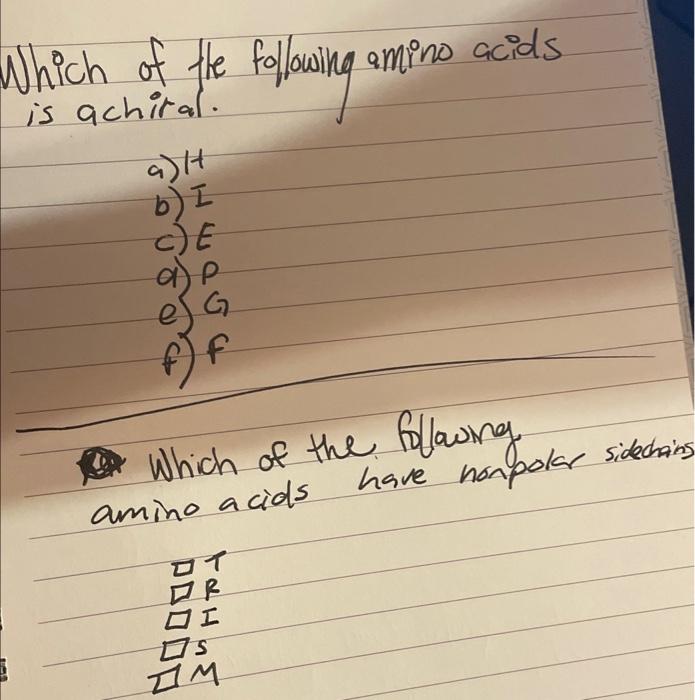 Which of the following amino acids
is achiral.
a) H
b) I
c) E
d) P
e) G
f) F
Which of the following
amino acids have nonpolar sidechains
T
R
I
S
M